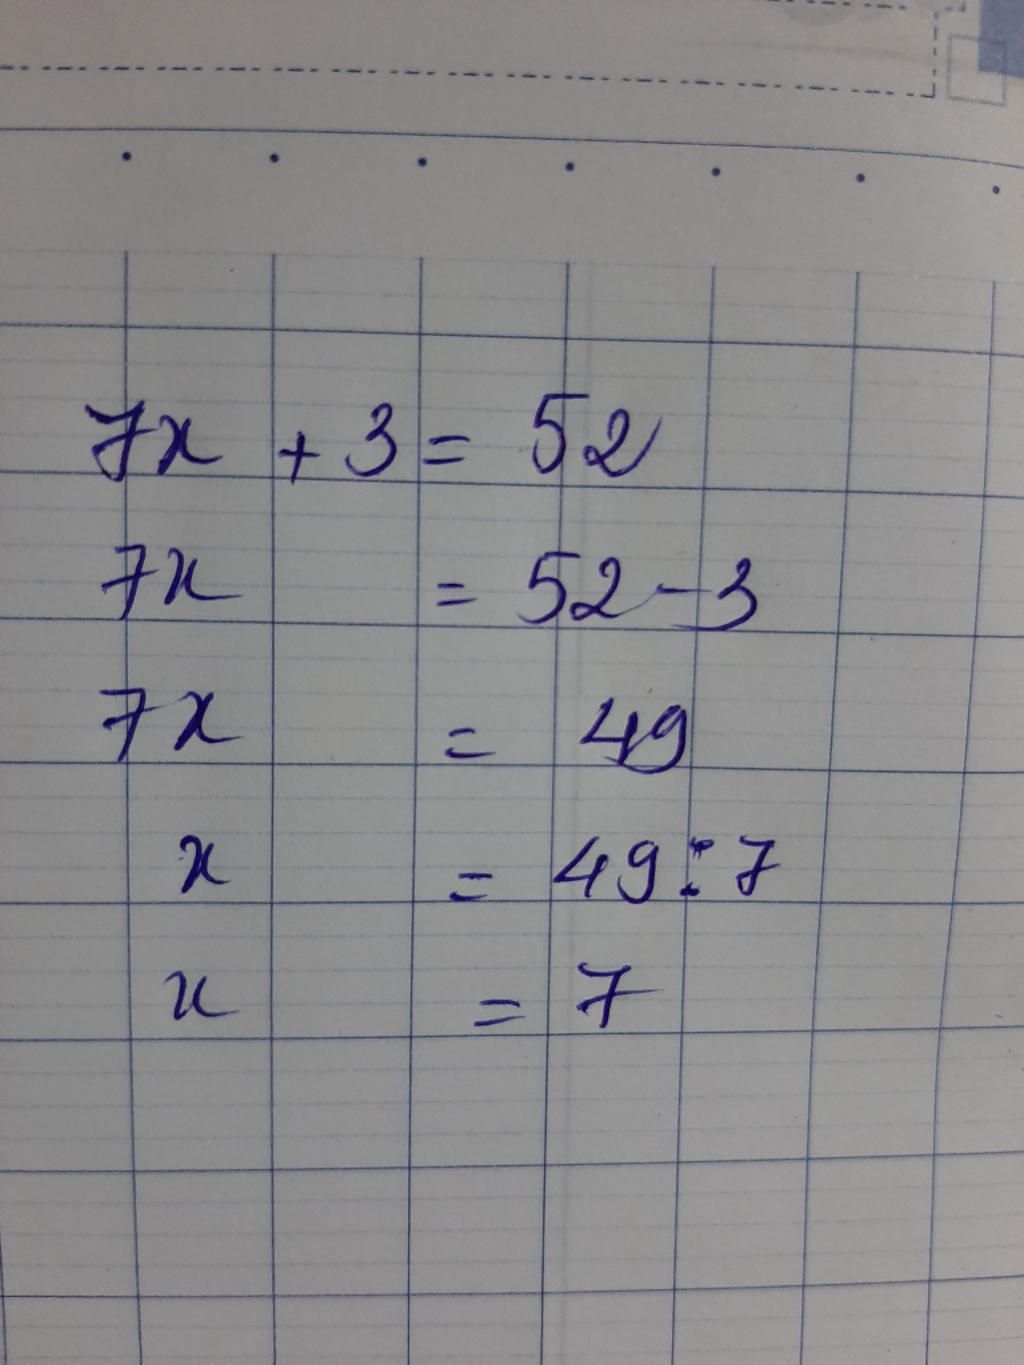 7x + 3 = 52
7x = 52 - 3
7x = 49
x = 49 : 7
x = 7